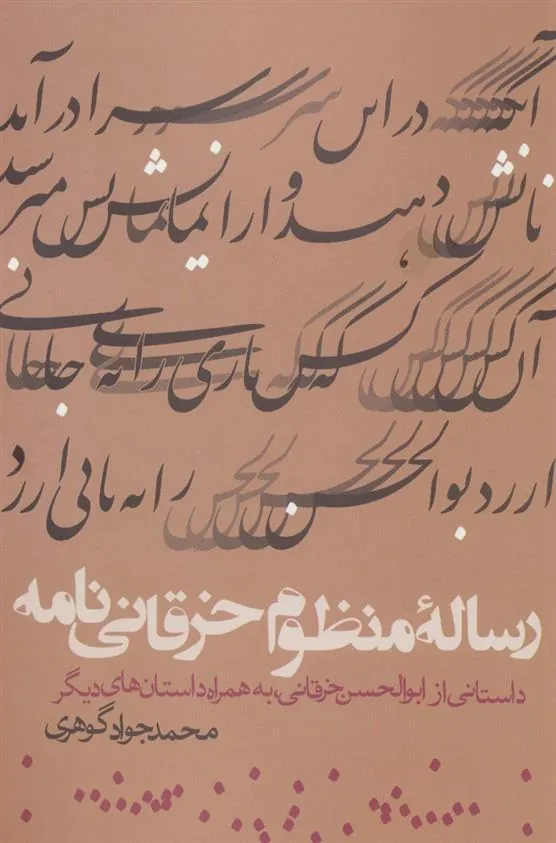 آنکه در این سرا درآید
نانش دهید و از ایمانش مپرسید
آن کس که نزد باری را به جانی
ارزد بوالحسن را به نانی ارزد
رسالهٔ منظوم خرقانی‌نامه
داستانی از ابوالحسن خرقانی، به همراه داستان‌های دیگر
محمدجواد گوهری